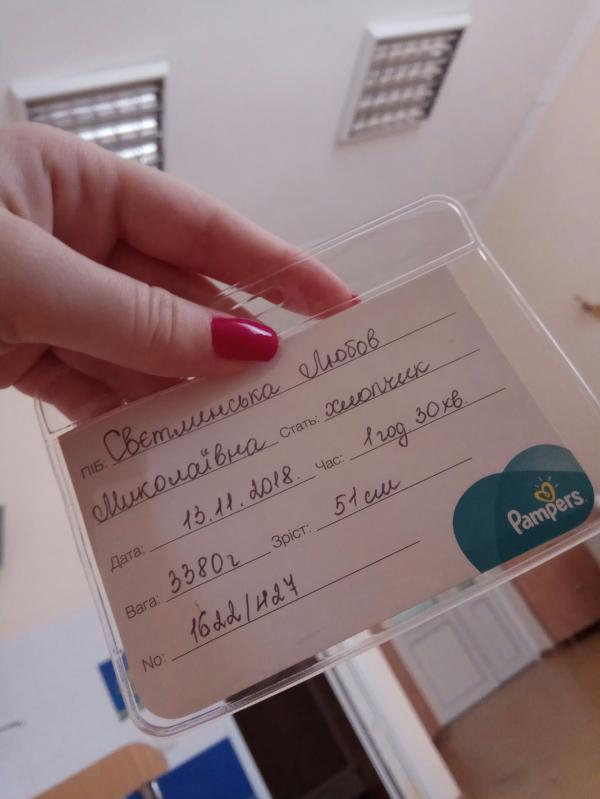 ПІБ: Свєтлинська Любов
Миколаївна Стать: хлопчик
Дата: 13.11.2018. Час: 1 год. 30 хв.
Вага: 3380г Зріст: 51 см
No: 1622/427
Pampers